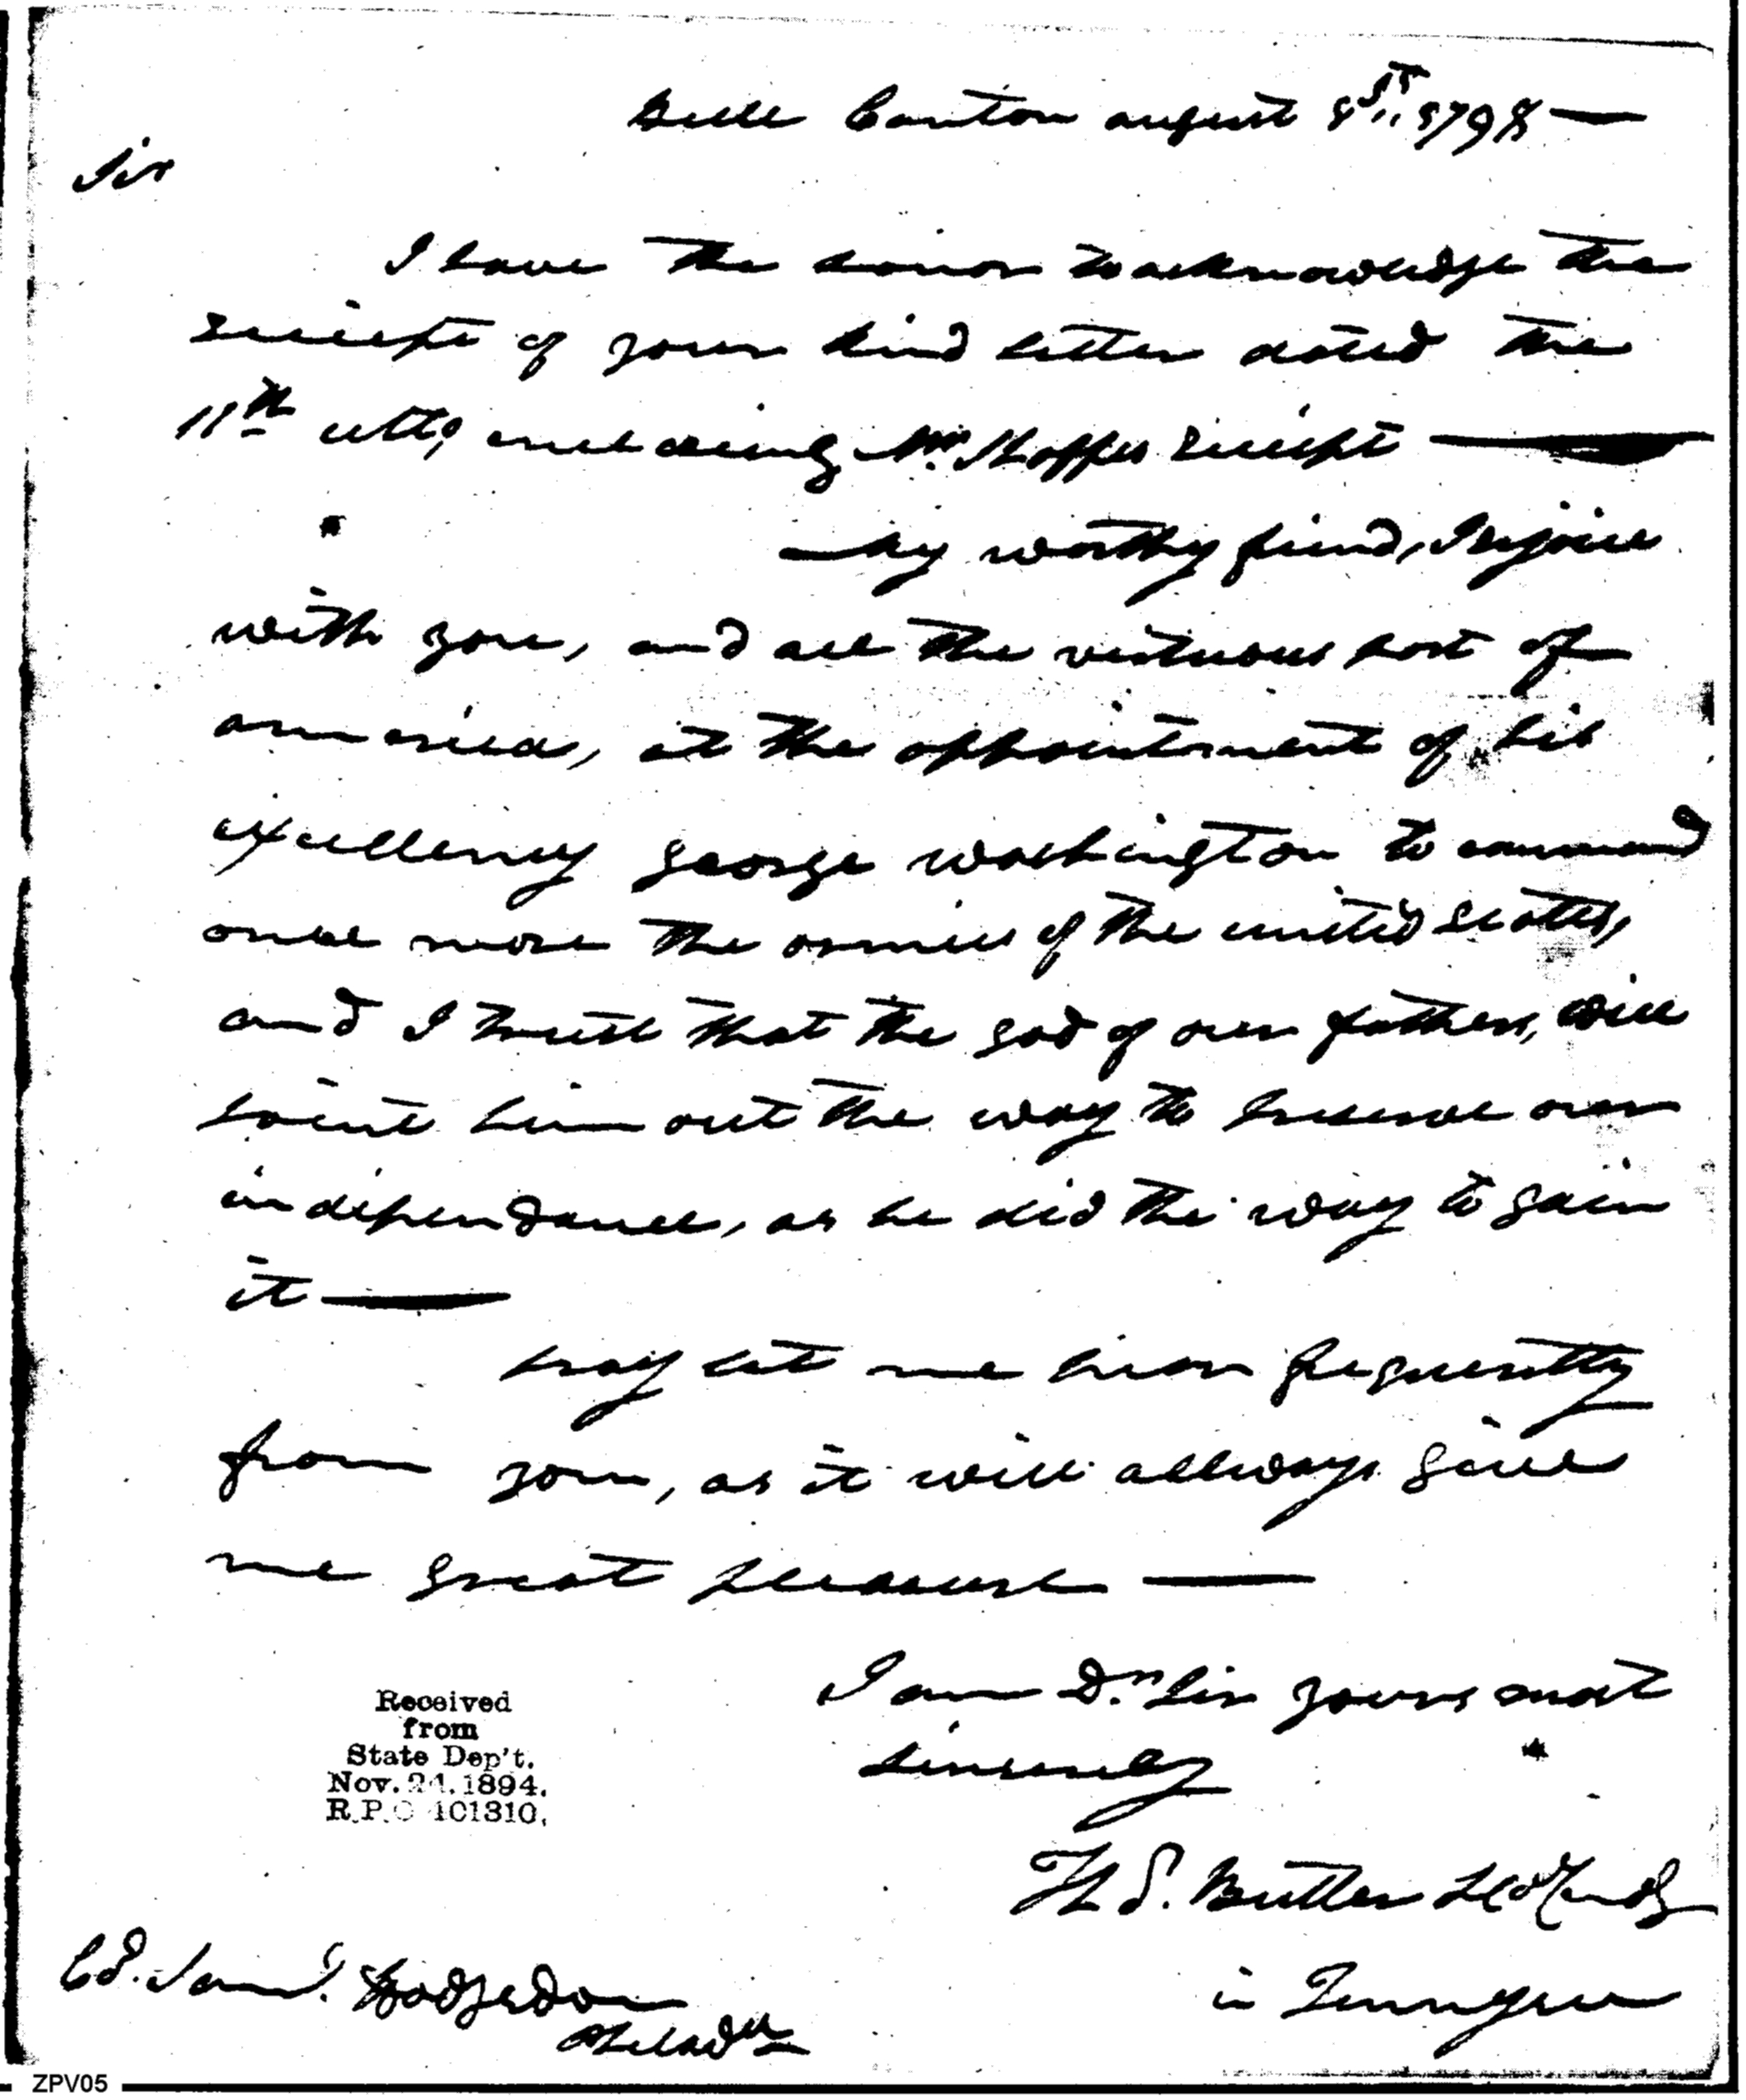 Belle Canton august 1st,, 1798 —
Sir
I have the honor to acknowledge the
receipt of your kind letter dated the
11th ulto, enclosing Mr. receipt —
My worthy friend, I rejoice
with you, and all the virtuous part of
america, at the appointment of his
excellency george washington to command
once more the armies of the united states,
and I trust that the god of our fathers, will
point him out the way to preserve our
independance, as he did the way to gain
it —
pray let me hear frequently
from you, as it will allways give
me great pleasure —
I am Dr. Sir yours most
sincerely
Received
from
State Dep't.
Nov. 24. 1894.
R.P.O 101310.
Th S. Butler
in Tennessee
Col. Saml. Hodgsdon
Philada
ZPV05